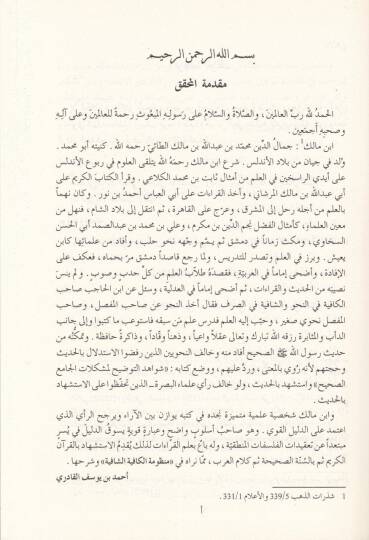 بسم الله الرحمن الرحيم
مقدمة المحقق
الحمدُ لله ربِّ العالمين، والصَّلاةُ والسَّلامُ على رَسولهِ المبعُوثِ رحمةً للعالمينَ وعلى آلِهِ
وصحبِهِ أجمَعين.
ابن مالك¹: جمالُ الدِّين محمّد بن عبدالله بن مالك الطائيّ رحمه الله. كنيته أبو محمد.
وُلد في جيان من بلاد الأندلس. شرع ابن مالك رحمهُ الله يتلقى العلوم في ربوع الأندلس
على أيدي الراسخين في العلم من أمثال ثابت بن محمد الكلاعي. وقرأ الكتابَ الكريم على
أبي عبدالله بن مالك المرشاني، وأخذ القراءات على أبي العباس أحمدَ بن نور. وكان نهماً
بالعلم من أجله رحل إلى المشرق، وعرّج على القاهرة، ثم انتقل إلى بلاد الشام، فنهل من
معين العلماء، كأمثال الفضل نجم الدِّين بن مكرم، وعلي بن محمد بن عبدالصمد أبي الحسن
السخاوي، ومكثَ زماناً في دمشق ثم يمّم وجْهه نحو حلب، وأفاد من علمائِها كابن
يعيش. وبرز في العلم وتصدر للتدريس، ولمّا رجع قاصداً دمشق مرّ بحماه، فعكف على
الإفادة، وأضحى إماماً في العربيّة، فقصدَهُ طلاّبُ العلم من كلِّ حدبٍ وصوبٍ. ولم ينسَ
نصيبَه من الحديث والقراءات، ثم أضحى إماماً في العدليّة، وسئل عن ابن الحاجب صاحب
الكافية في النحو والشافية في الصرف فقال أخذ النحو عن صاحب المفصل، وصاحب
المفصل نحوي صغير، وحبّب إليه العلم فدرس علم مَن سبقه فاستوعب ما كتبوا وإلى جانب
الدأب والمثابرة رزقه الله تبارك وتعالى عقلاً واعياً، وذهناً وقّاداً، وذاكرةً حافظة. وتمكُّنه من
حديث رسول الله ﷺ الصحيح أفاد منه وخالف النحويين الذين رفضوا الاستدلال بالحديث
وحجتهم لأنه رُوي بالمعنى، وردّ عليهم، ووضع كتابه: «شواهد التوضيح لمشكلات الجامع
الصحيح» واستشهد بالحديث، ولو خالف رأي علماء البصرة ـ الذين تحفّظوا على الاستشهاد
بالحديث.
وابن مالك شخصية علمية متميزة نجده في كتبه يوازن بين الآراء ويرجح الرأي الذي
اعتمد على الدليل القوي. وهو صاحبُ أسلوبٍ واضح وعبارةٍ قوية يسوقُ الدليلَ في يُسرٍ
مبتعداً عن تعقيدات الفلسفات المنطقيّة، وله باعٌ بعلم القراءات لذلك يُقدِّمُ الاستشهاد بالقرآن
الكريم ثم بالسّنة الصحيحة ثم كلام العرب، ممّا نراه في «منظومة الكافية الشافية» وشرحها.
أحمد بن يوسف القادري
1 شذرات الذهب 339/5 والأعلام 331/1.
أ